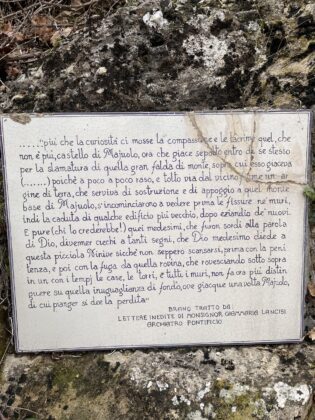 ......"più che la curiosità ci mosse la compassione e le lacrime quel, che
non è più, castello di Majuolo, ora che giace sepolto entro di se stesso
per la slamatura di quella gran falda di monte, sopra cui esso giaceva
(......) poichè a poco a poco raso, e tolto via dal vicino fiume un ar=
gine di terra, che serviva di sostruzione e di appoggio a quel monte
base di Majuolo, s'incominciarono a vedere prima le fissure ne' muri,
indi la caduta di qualche edificio più vecchio, dopo eziandio de' nuovi.
E pure (chi lo crederebbe!) quei medesimi, che furon sordi alla parola
di Dio, divemer ciechi a tanti segni, che Dio medesimo diede a
questa picciola Ninive sicchè non seppero scansarsi, prima con la peni
tenza, e poi con la fuga da quella rovina, che rovesciando sotto sopra
in un con i tempj le case, le torri, e tutti i muri, non fa ora più distin
guere su quella inuguaglianza di fondo, ove giacque una volta Majuolo,
di cui pianger si dee la perdita"
BRANO TRATTO DA:
LETTERE INEDITE DI MONSIGNOR GIAMMARIA LANCISI
ARCHIATRO PONTIFICIO